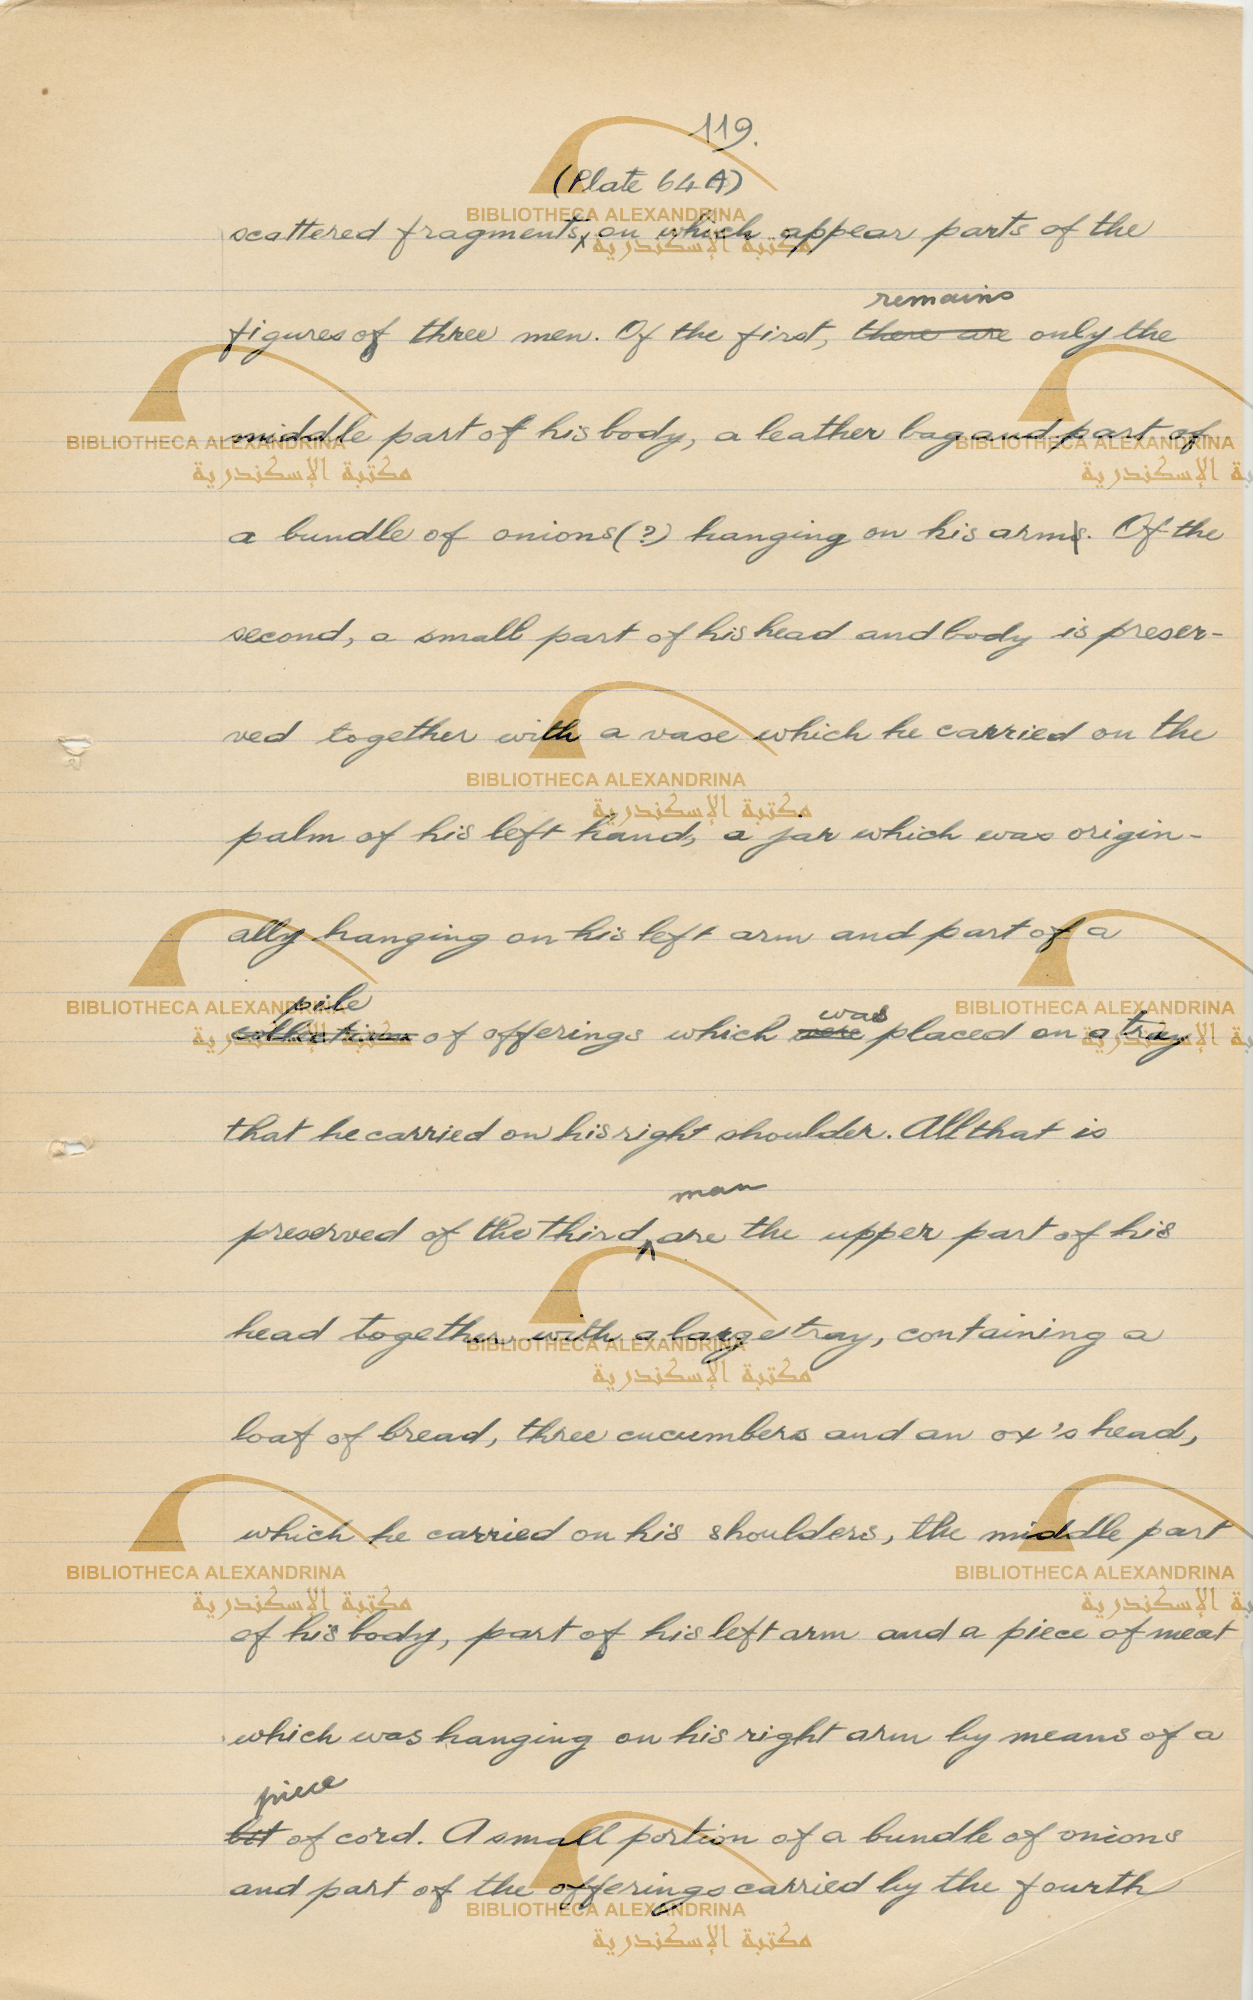 119.
(Plate 64 A)
scattered fragments, on which appear parts of the
remains
figures of three men. Of the first, there are only the
middle part of his body, a leather bag and part of
a bundle of onions (?) hanging on his arms. Of the
second, a small part of his head and body is preser-
ved together with a vase which he carried on the
palm of his left hand, a jar which was origin-
ally hanging on his left arm and part of a
pile was
collection of offerings which were placed on a tray
that he carried on his right shoulder. All that is
man
preserved of the third are the upper part of his
head together with a large tray, containing a
loaf of bread, three cucumbers and an ox's head,
which he carried on his shoulders, the middle part
of his body, part of his left arm and a piece of meat
which was hanging on his right arm by means of a
piece
bit of cord. A small portion of a bundle of onions
and part of the offerings carried by the fourth
BIBLIOTHECA ALEXANDRINA
مكتبة الإسكندرية